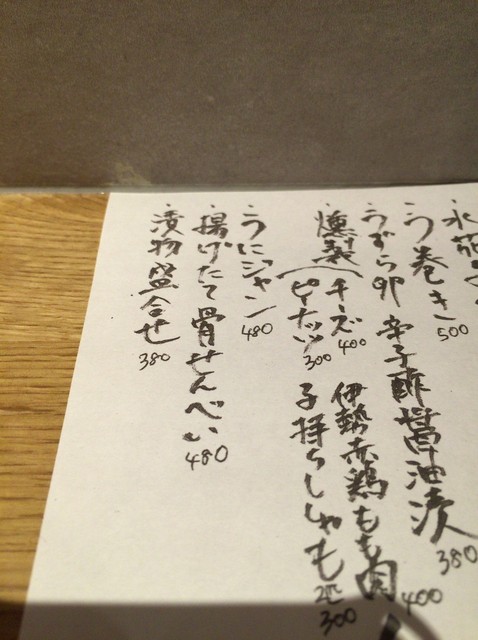 う巻き 500
うずら卵 辛子酢醤油漬 380
燻製
チーズ 400
伊勢赤鶏もも肉 400
ピーナッツ 300
子持ちししゃも 2匹 300
うにジャン 480
揚げたて骨せんべい 480
漬物盛合せ 380